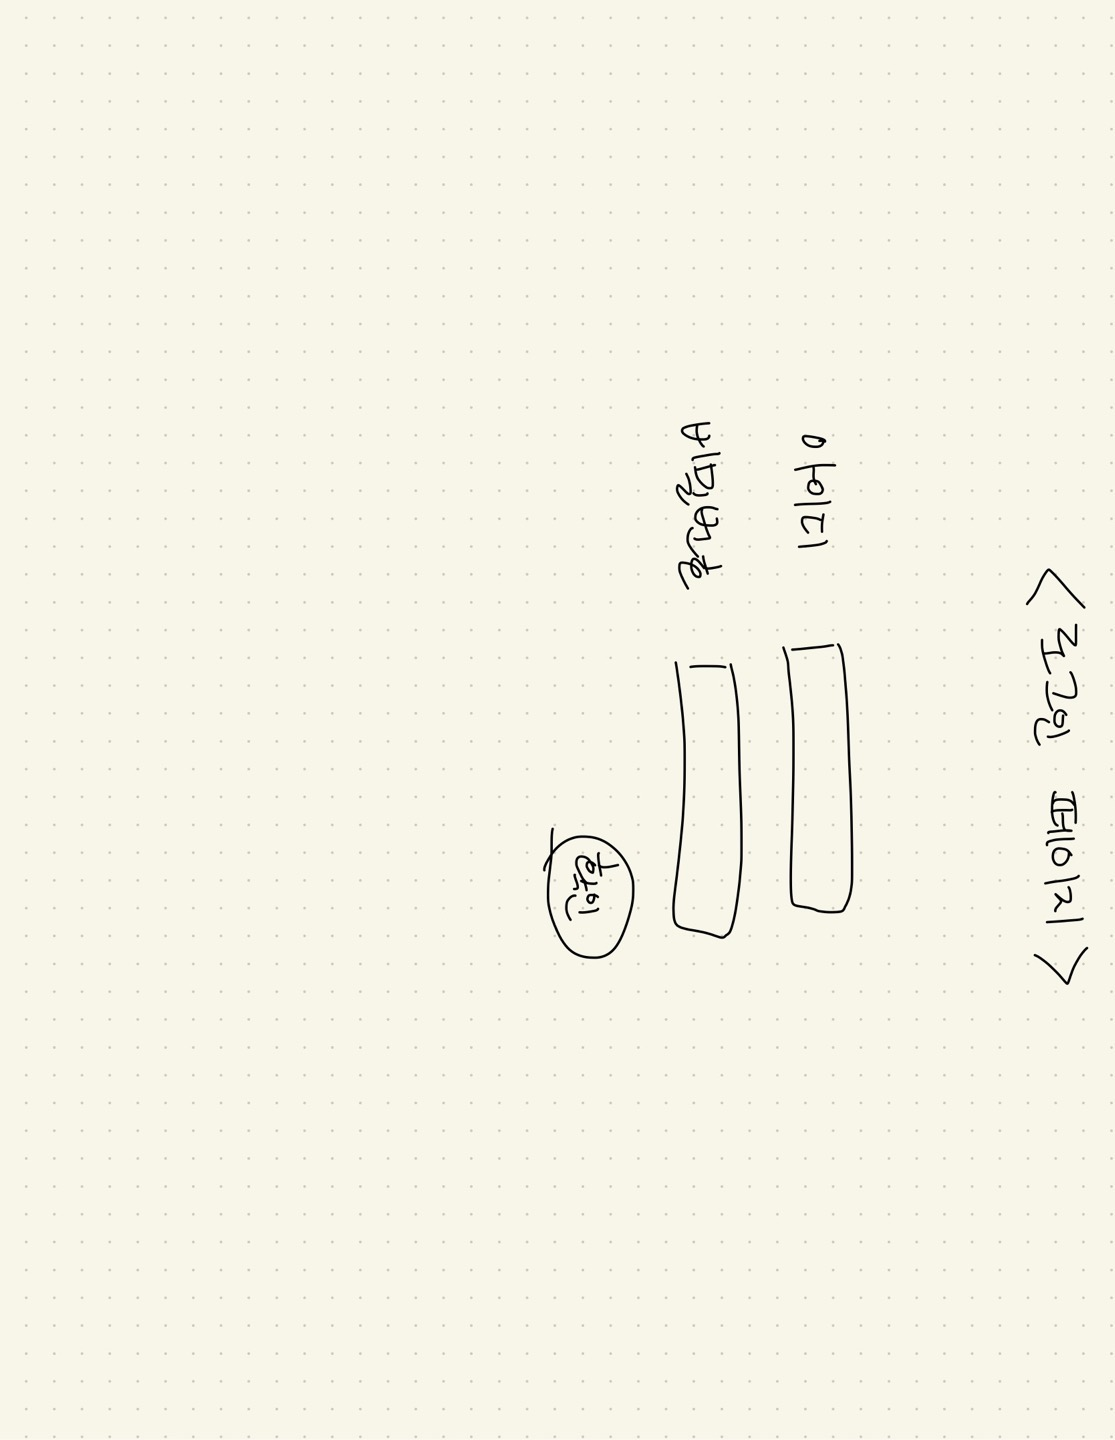 <로그인 페이지>
아이디
비밀번호
확인